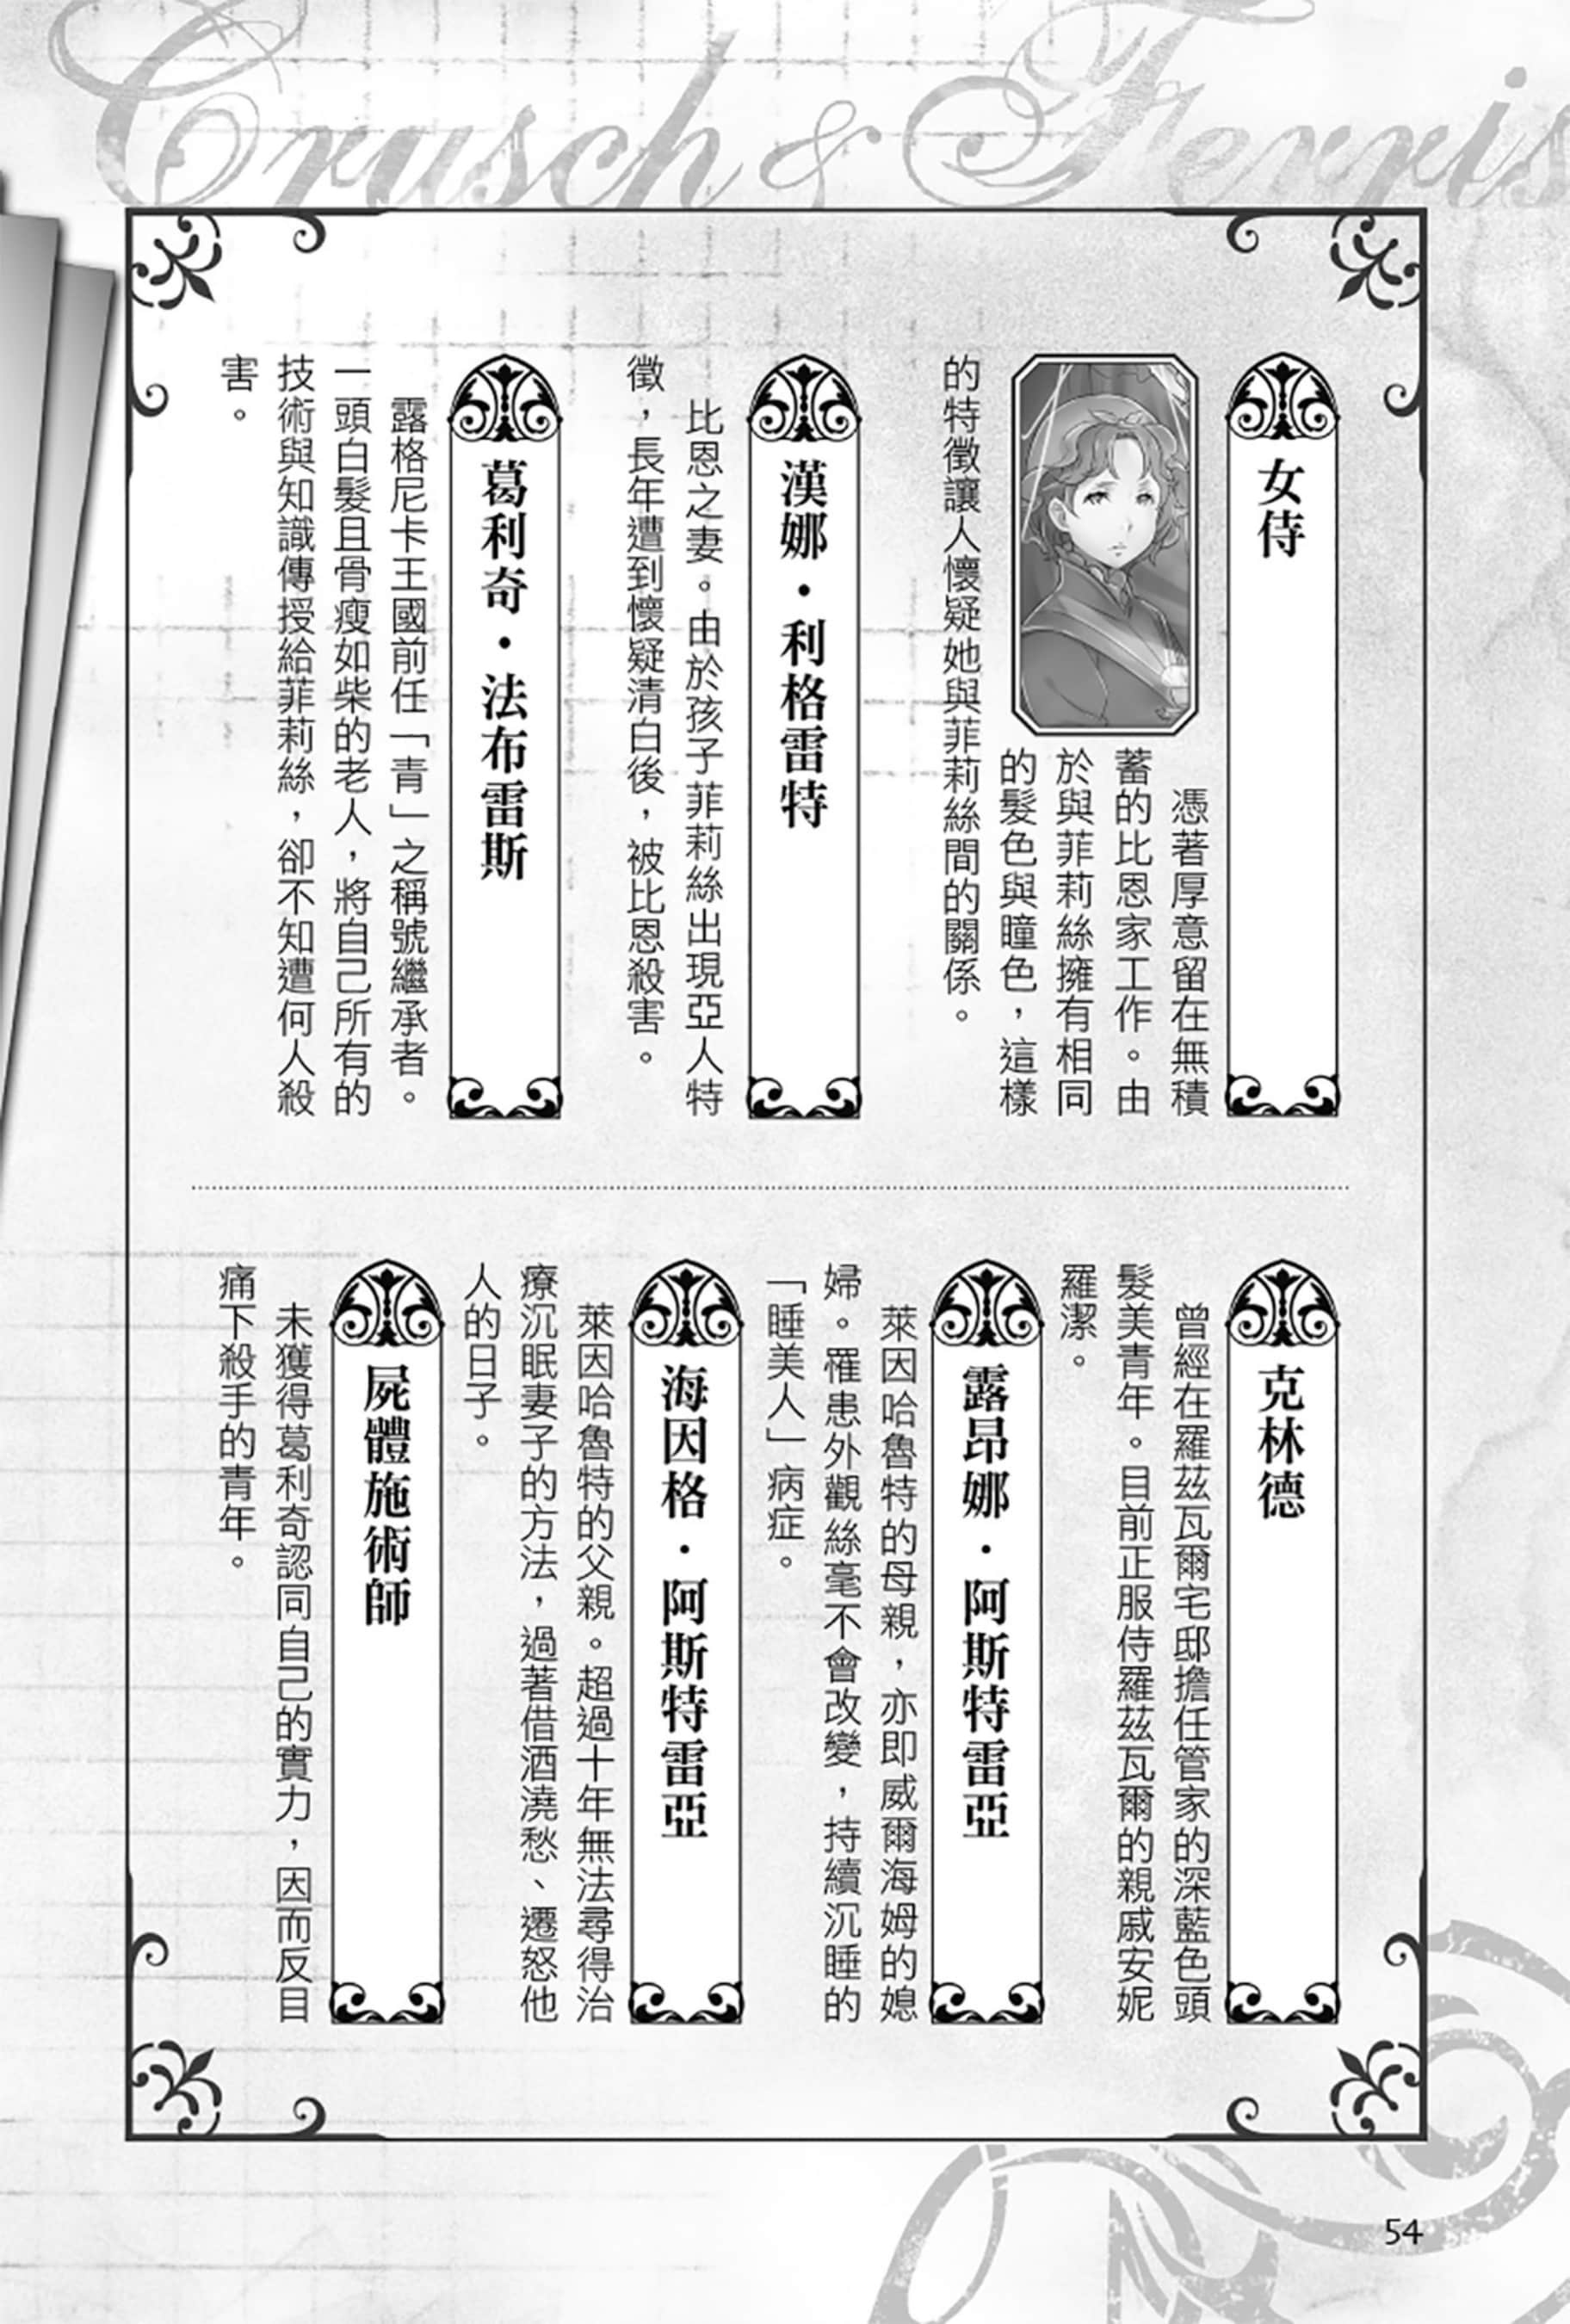 Crusch & Ferris
女侍
憑著厚意留在無積
蓄的比恩家工作。由
於與菲莉絲擁有相同
的髮色與瞳色，這樣
的特徵讓人懷疑她與菲莉絲間的關係。
漢娜・利格雷特
比恩之妻。由於孩子菲莉絲出現亞人特
徵，長年遭到懷疑清白後，被比恩殺害。
葛利奇・法布雷斯
露格尼卡王國前任「青」之稱號繼承者。
一頭白髮且骨瘦如柴的老人，將自己所有的
技術與知識傳授給菲莉絲，卻不知遭何人殺
害。
克林德
曾經在羅茲瓦爾宅邸擔任管家的深藍色頭
髮美青年。目前正服侍羅茲瓦爾的親戚安妮
羅潔。
露昂娜・阿斯特雷亞
萊因哈魯特的母親，亦即威爾海姆的媳
婦。罹患外觀絲毫不會改變，持續沉睡的
「睡美人」病症。
海因格・阿斯特雷亞
萊因哈魯特的父親。超過十年無法尋得治
療沉眠妻子的方法，過著借酒澆愁、遷怒他
人的日子。
屍體施術師
未獲得葛利奇認同自己的實力，因而反目
痛下殺手的青年。
54